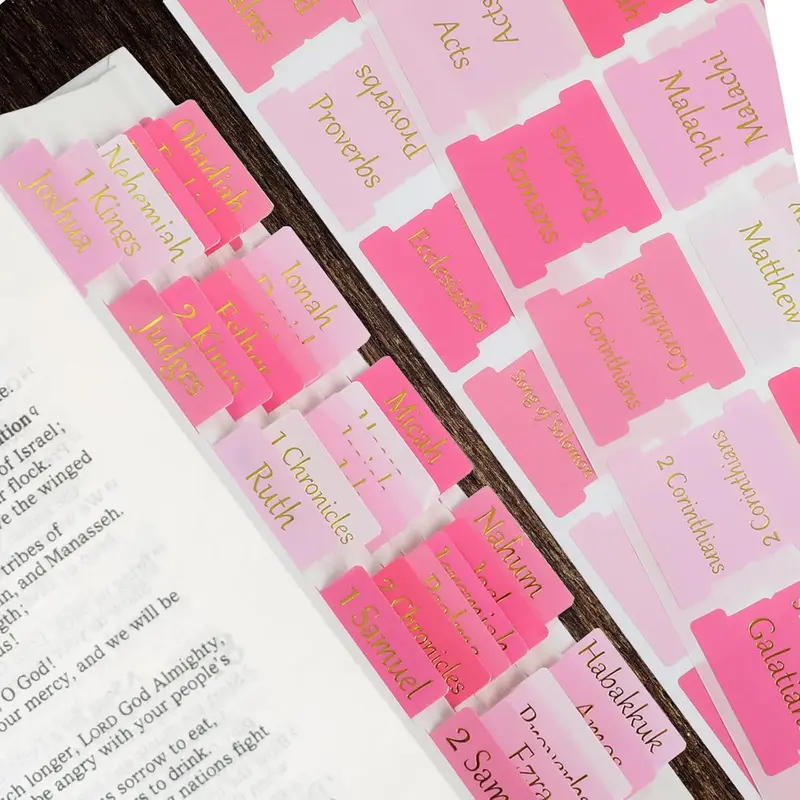 Joshua
1 Kings
Nehemiah
Obadiah
Judges
2 Kings
Esther
Jonah
Ruth
1 Chronicles
Micah
1 Samuel
2 Chronicles
Psalms
Jeremiah
Joel
Nahum
2 Sam
Ezra
Proverbs
Amos
Habakkuk
Acts
Acts
Proverbs
Proverbs
Romans
Romans
Malachi
Malachi
Ecclesiastes
1 Corinthians
1 Corinthians
Matthew
Song of Solomon
2 Corinthians
2 Corinthians
Galatian
of Israel;
flock.
the winged
tribes of
and Manasseh.
O God!
our mercy, and we will be
ch longer, LORD God Almighty,
be angry with your people's
sorrow to eat,
to drink.
nations fight